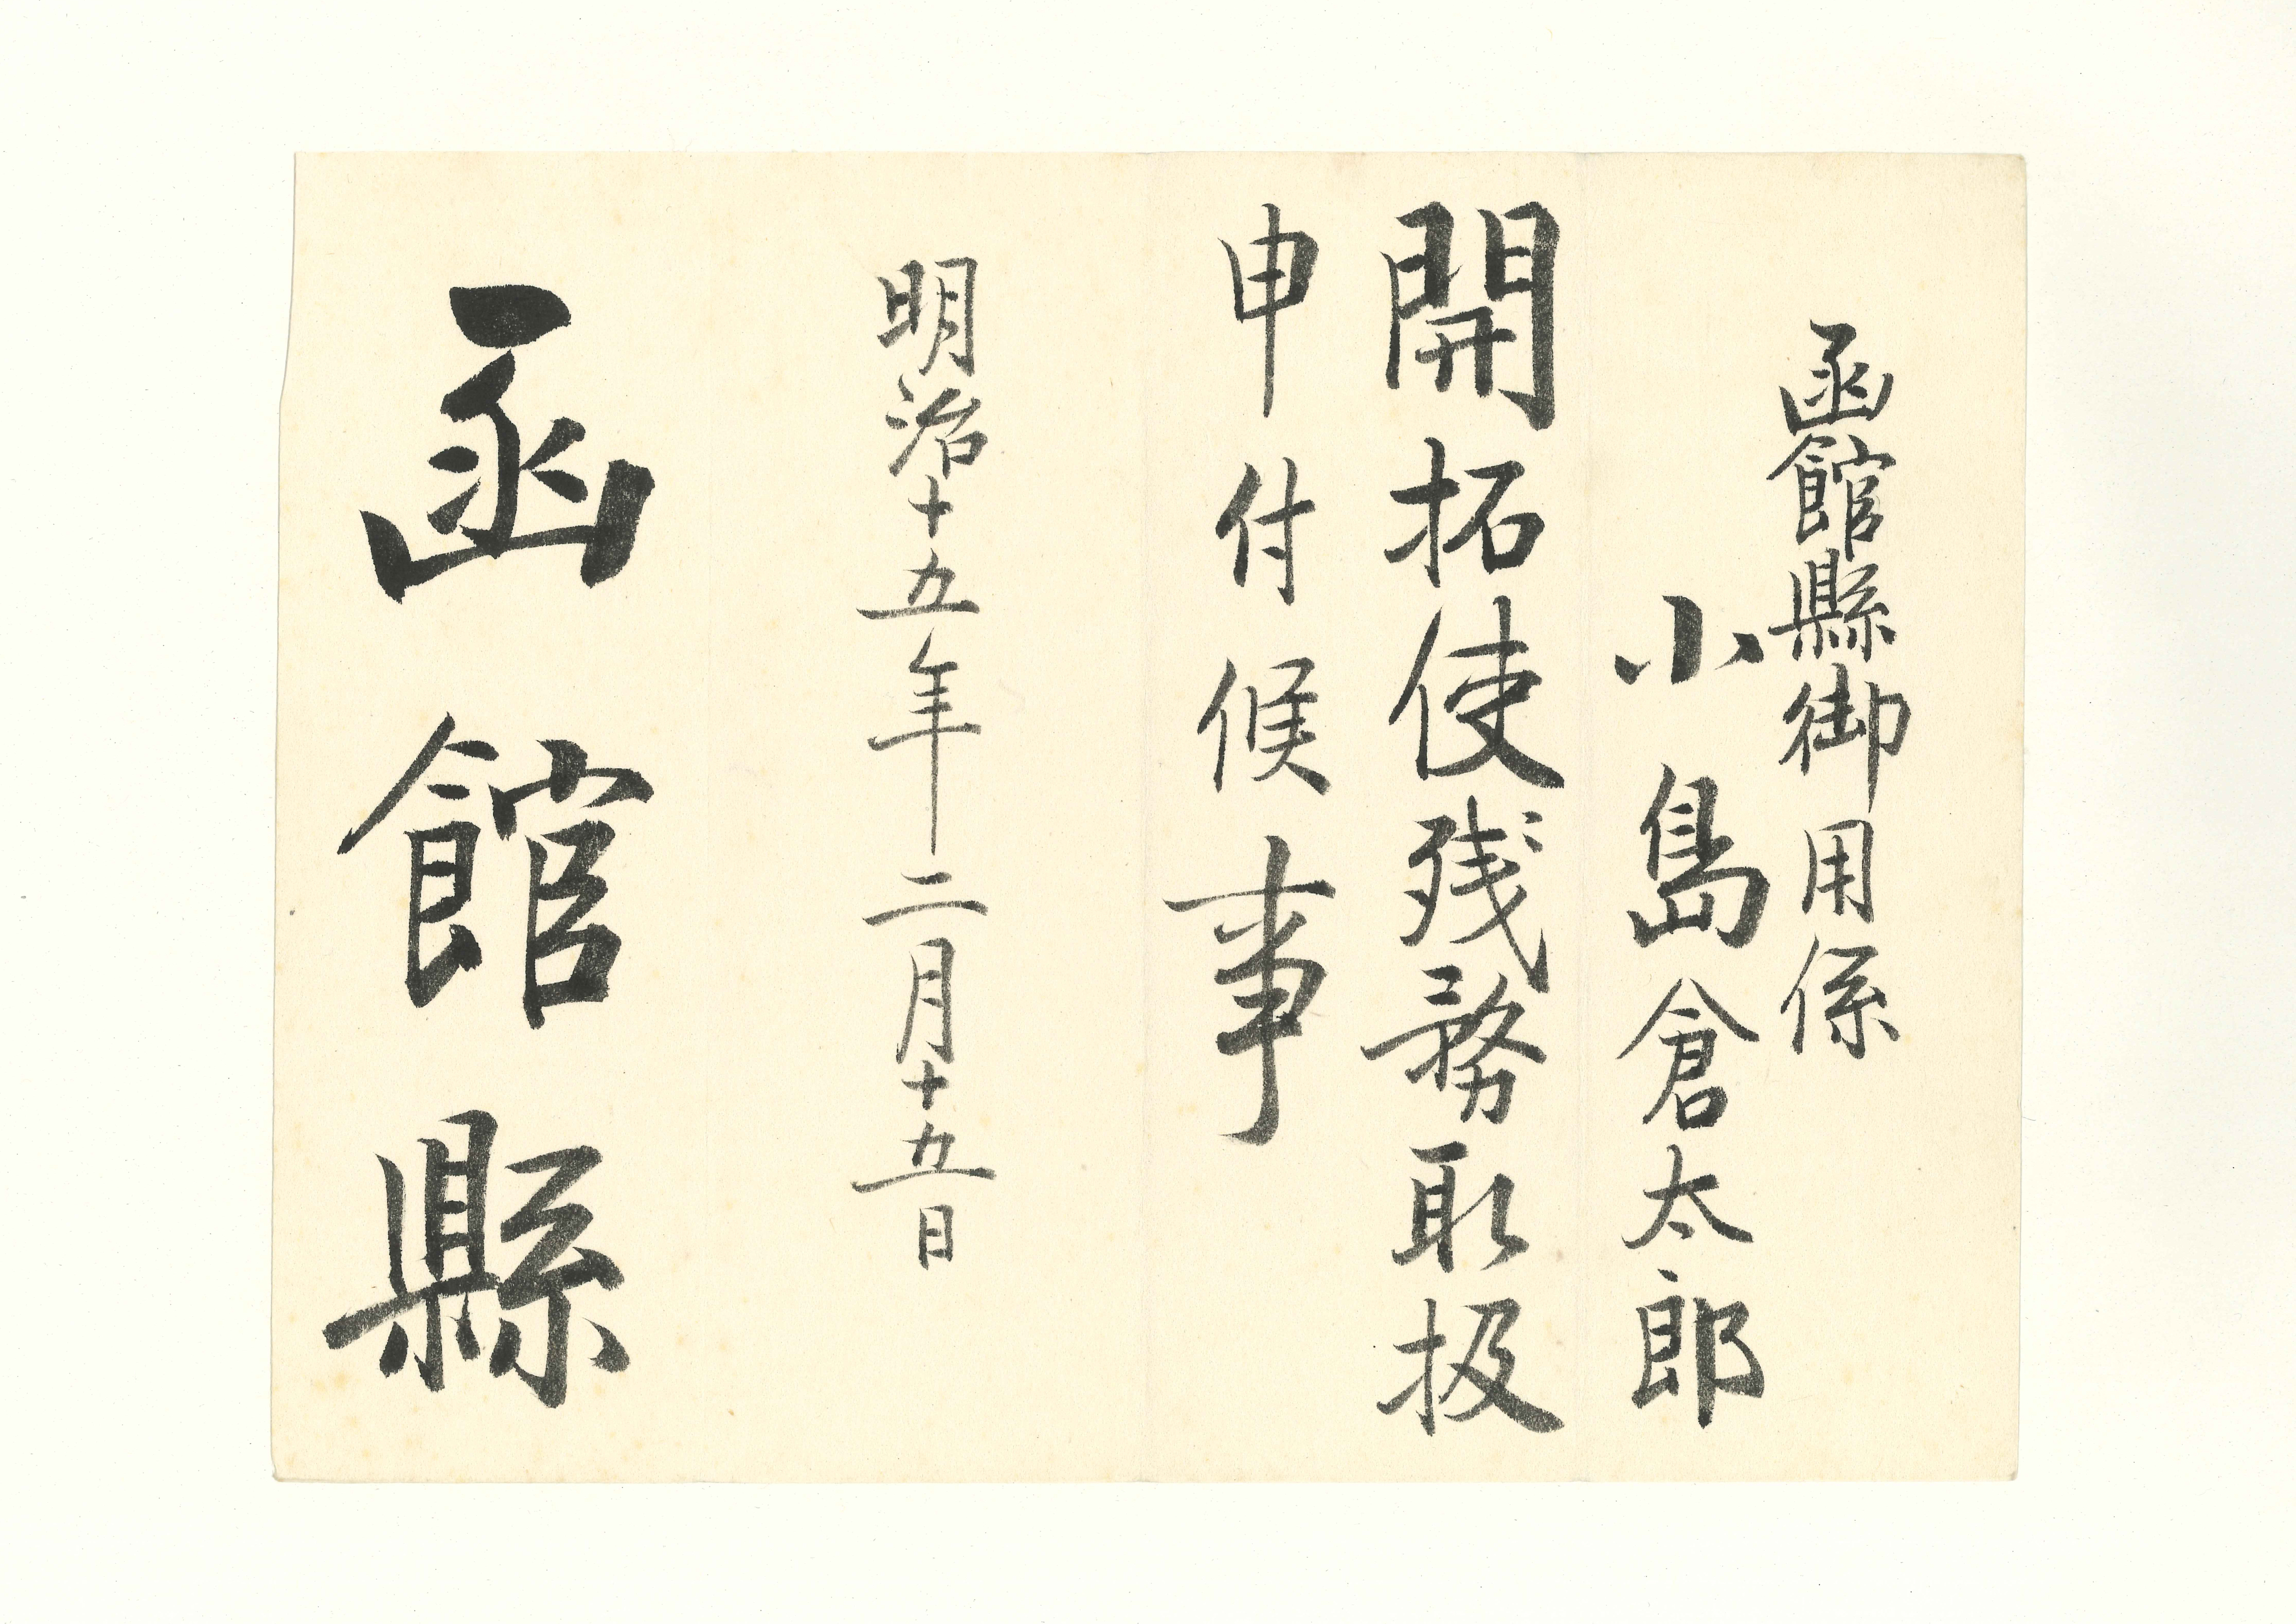 函館縣御用係
小島倉太郎
開拓使残務取扱
申付候事
明治十五年二月十五日
函館縣